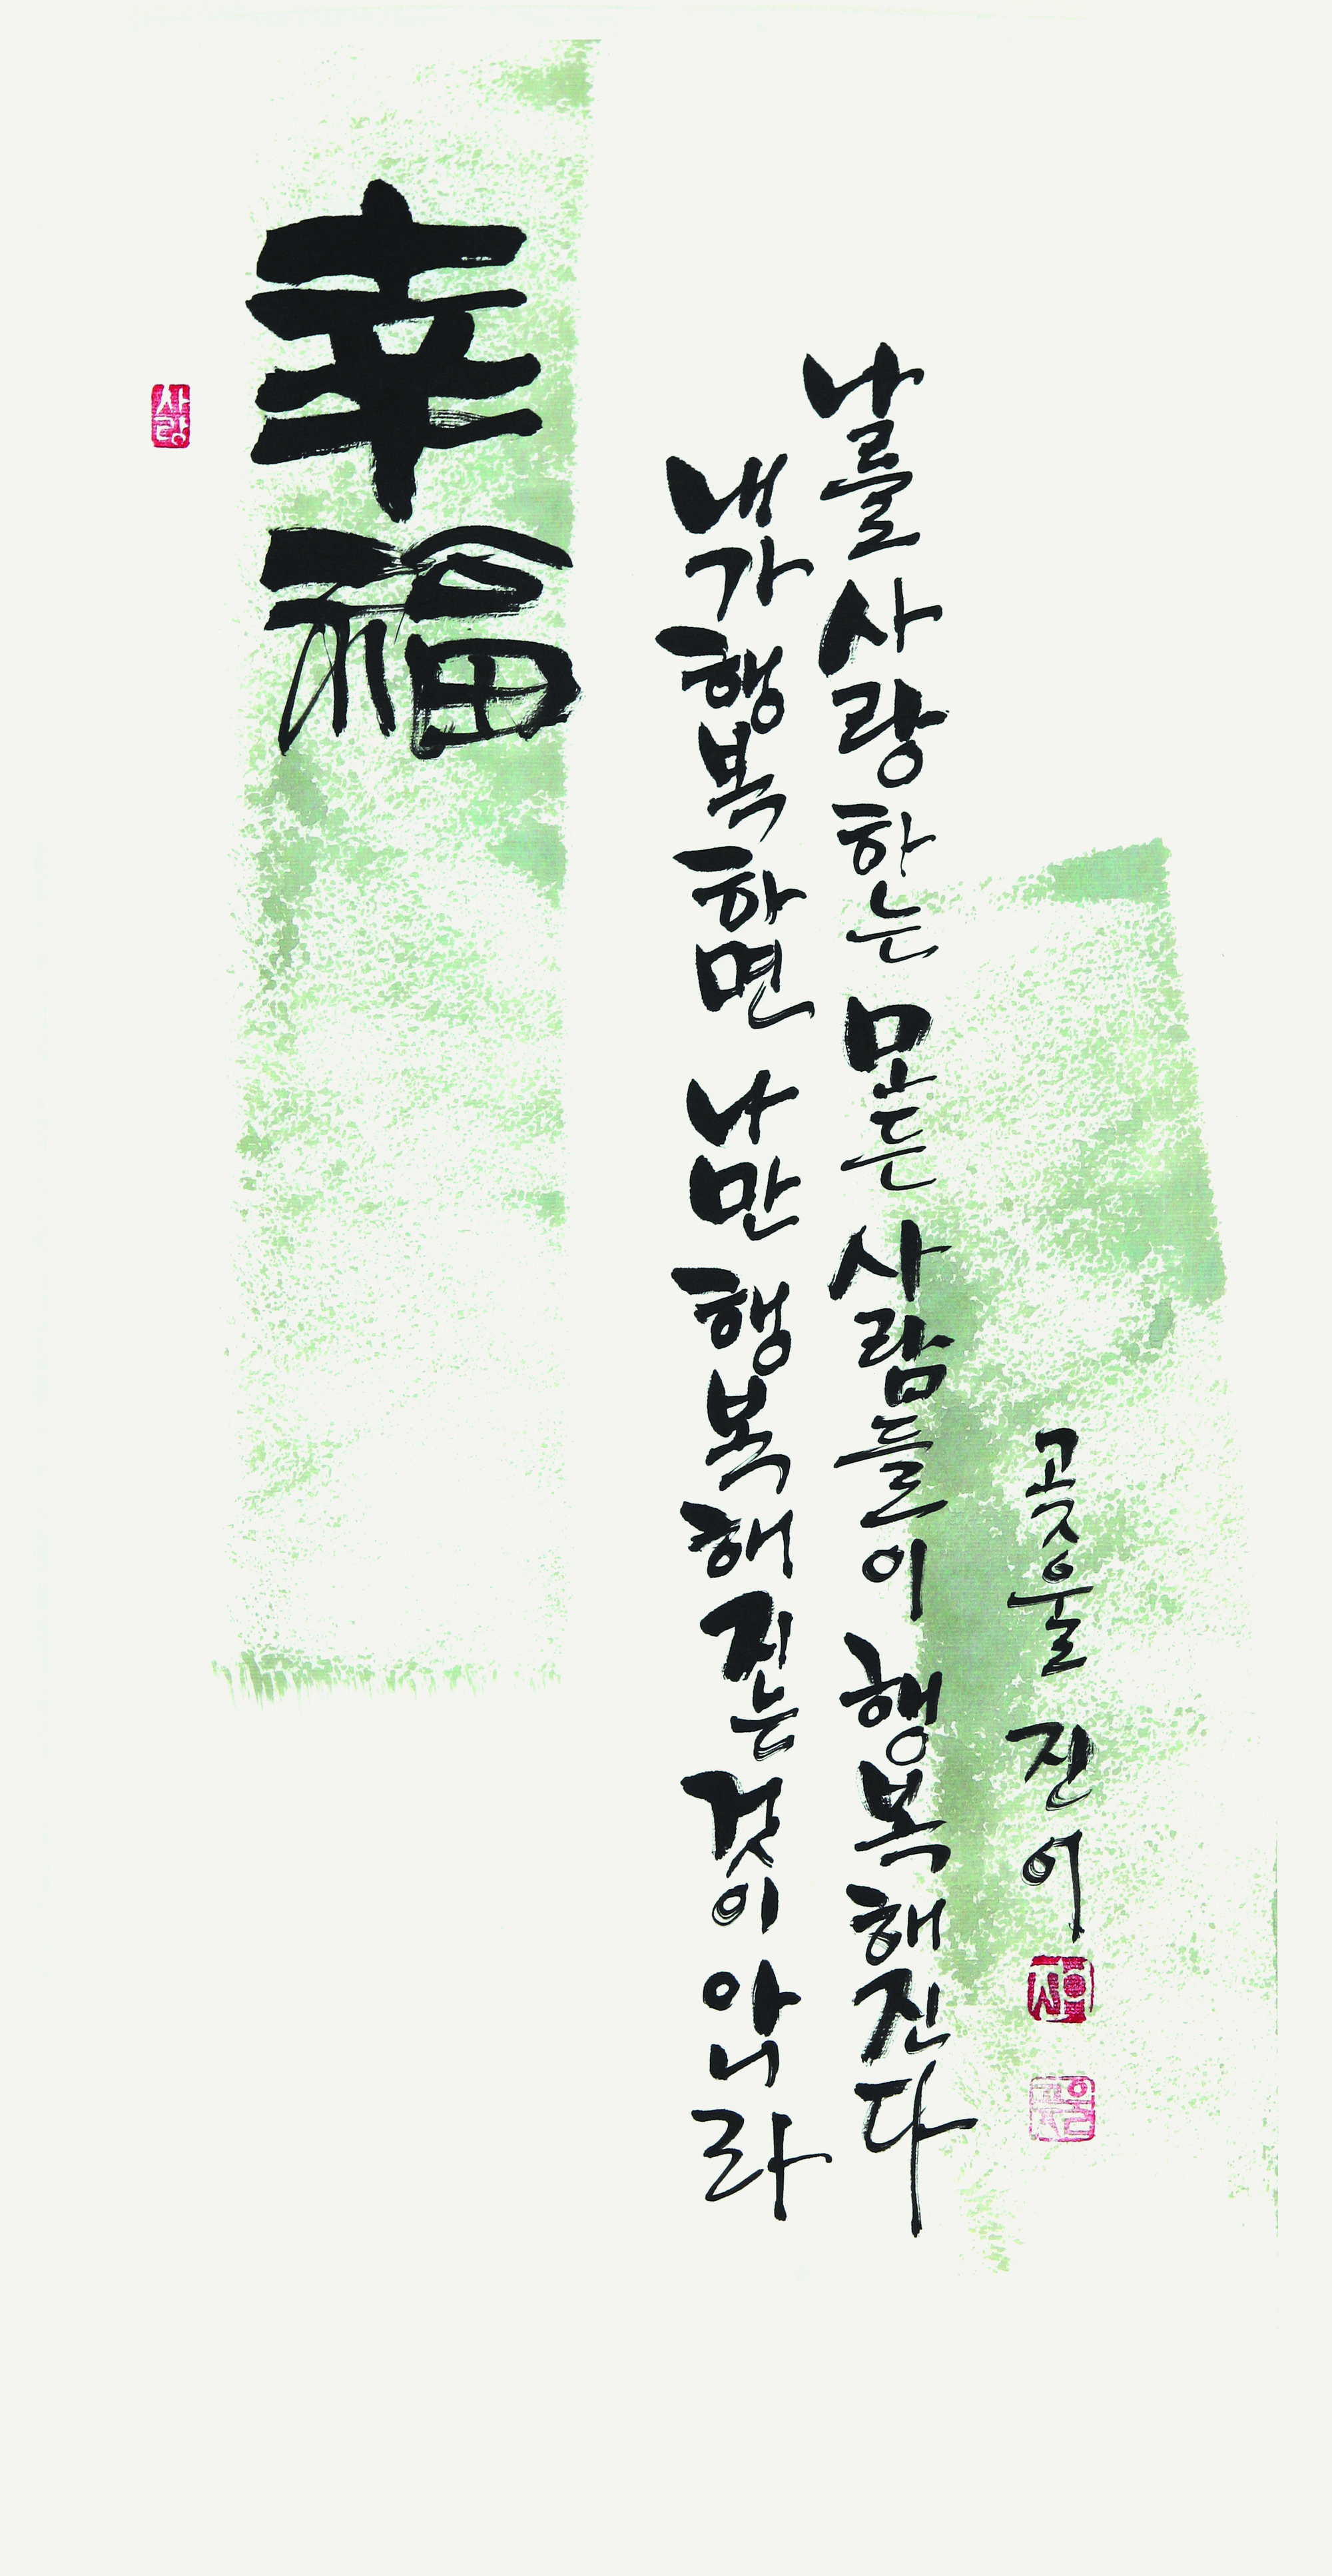 幸福
내가 행복하면 나만 행복해지는 것이 아니라
나를 사랑하는 모든 사람들이 행복해진다
곶울 진어
사랑